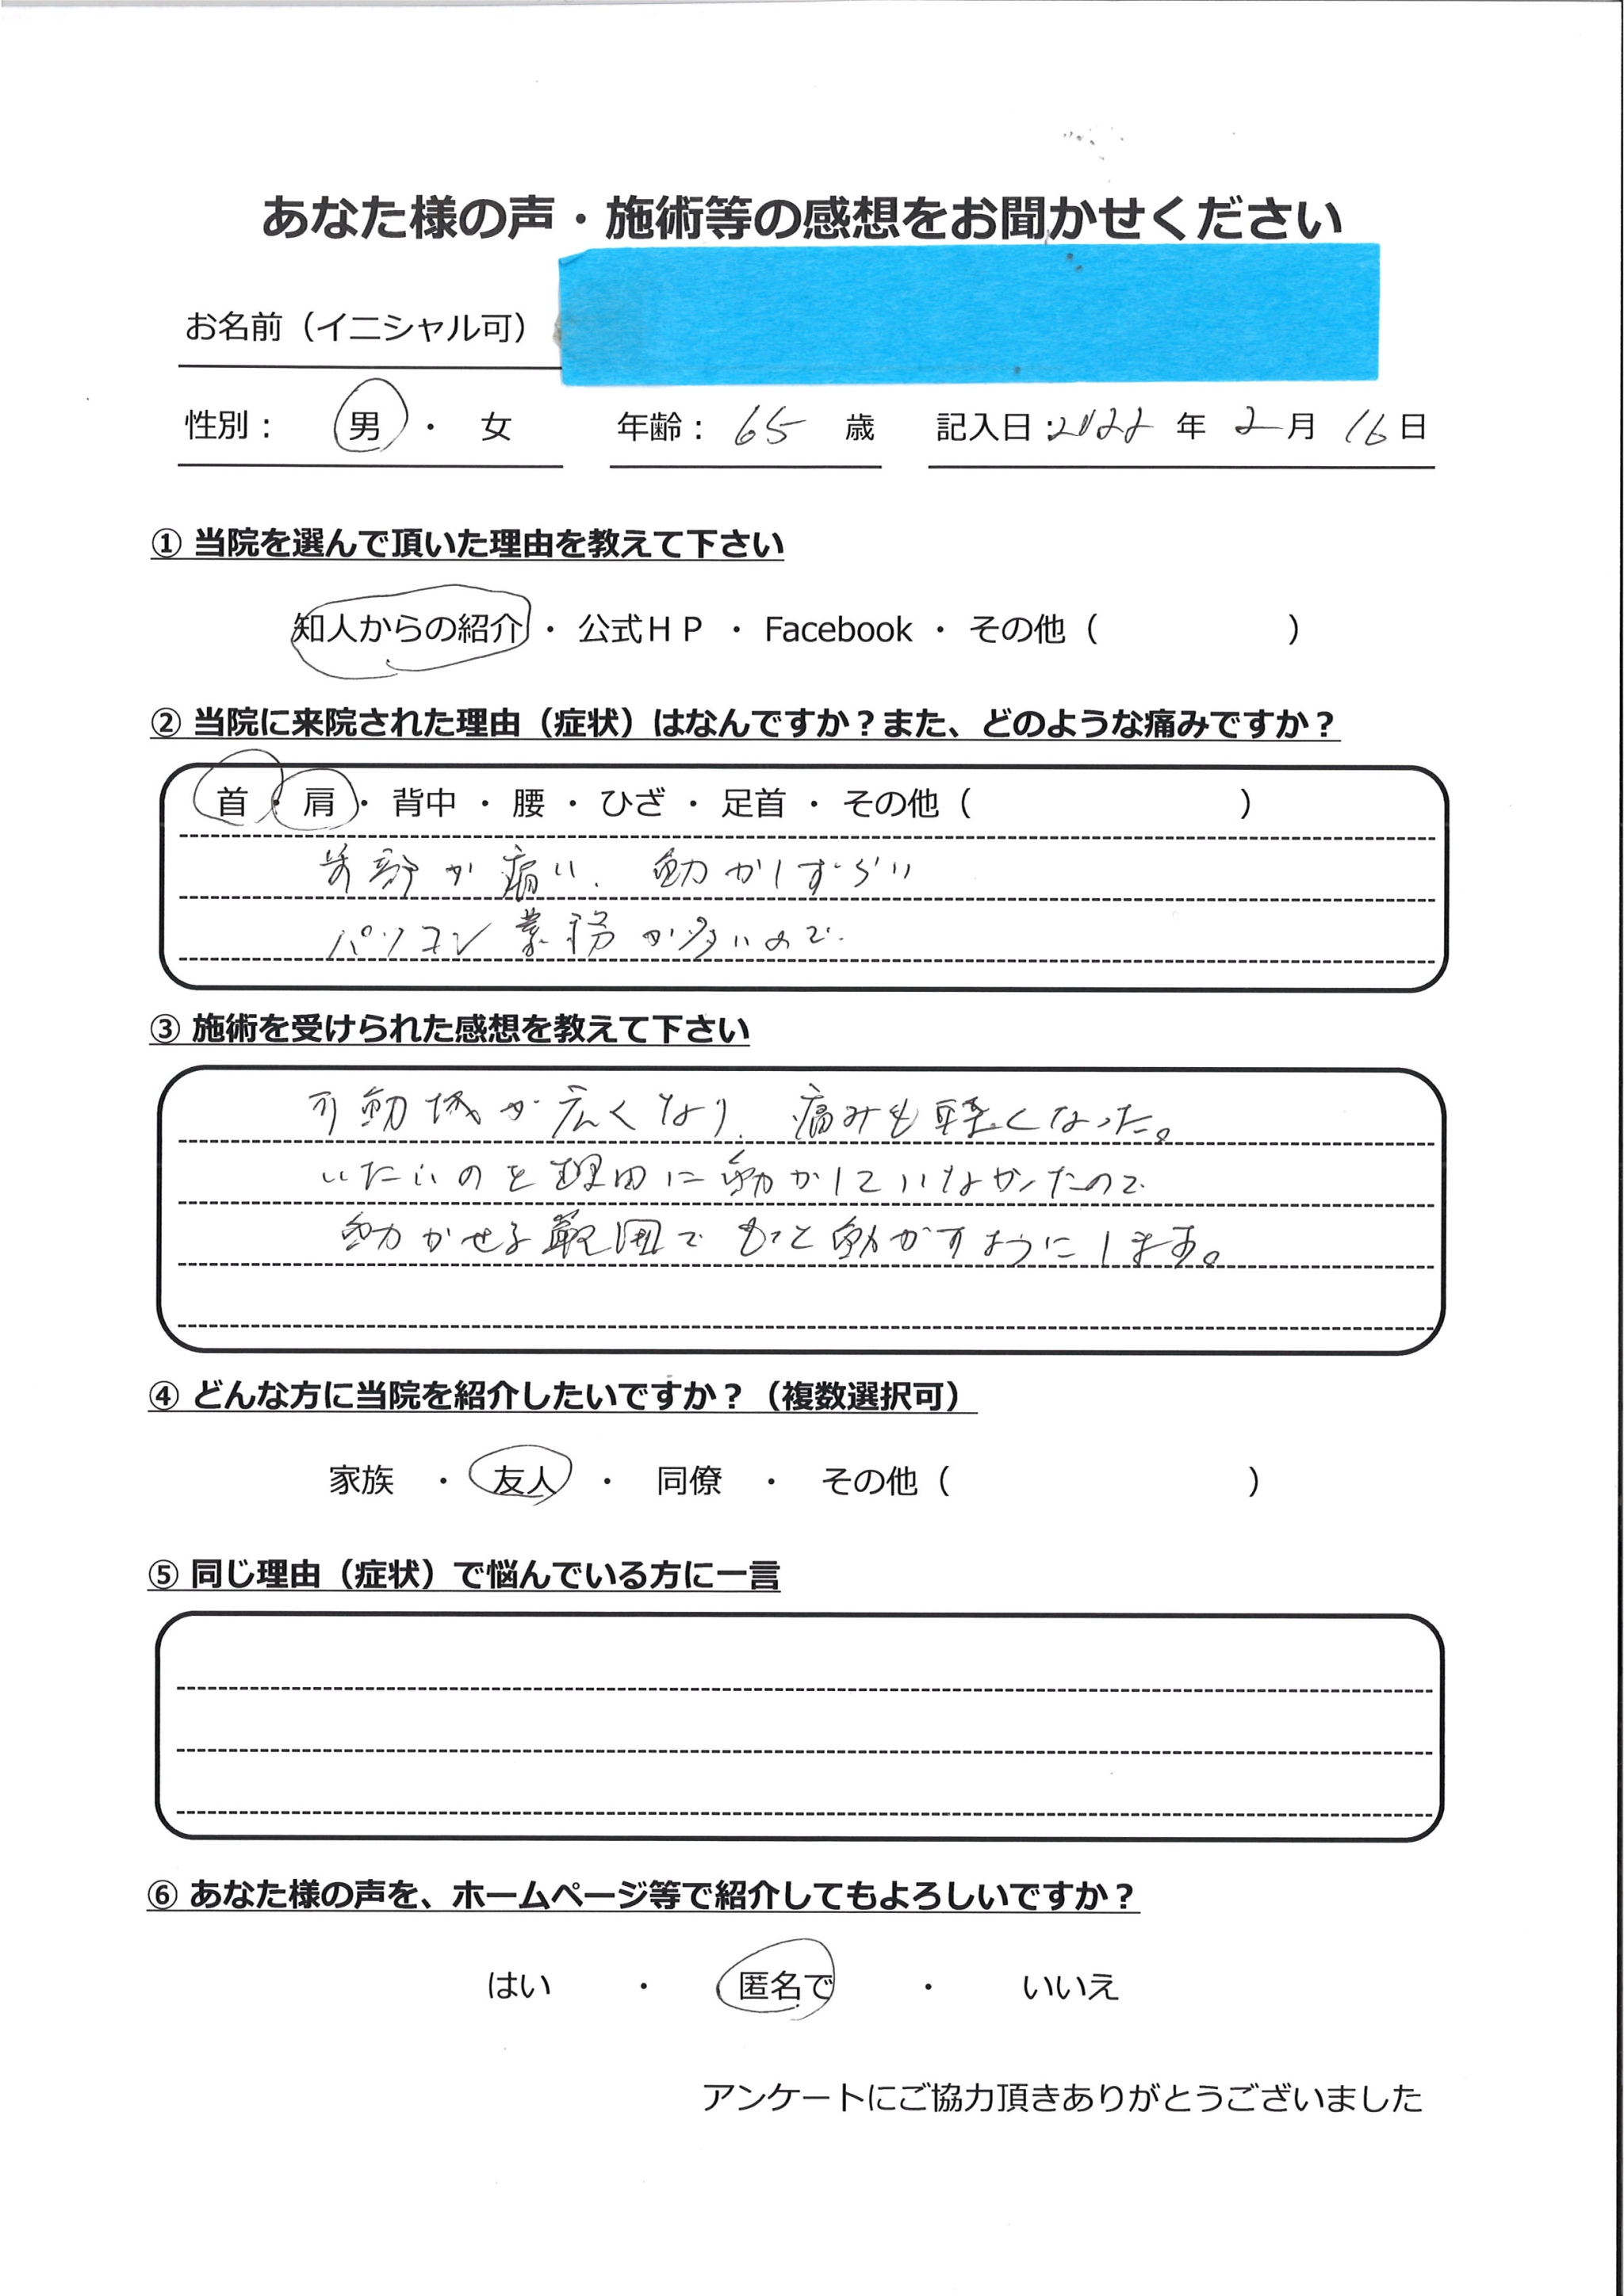 あなた様の声・施術等の感想をお聞かせください
お名前（イニシャル可）
性別： 男 ・ 女 年齢： 65 歳 記入日：2022 年 2月 16日
① 当院を選んで頂いた理由を教えて下さい
知人からの紹介 ・ 公式ＨＰ ・ Facebook ・ その他（ ）
② 当院に来院された理由（症状）はなんですか？また、どのような痛みですか？
首 ・ 肩 ・ 背中 ・ 腰 ・ ひざ ・ 足首 ・ その他（ ）
部が痛い、動かしずらい
パソコン業務が多いので
③ 施術を受けられた感想を教えて下さい
可動域が広くなり、痛みも軽くなった。
いたいのを理由に動かしていなかったので
動かせる範囲でもっと動かすようにします。
④ どんな方に当院を紹介したいですか？（複数選択可）
家族 ・ 友人 ・ 同僚 ・ その他（ ）
⑤ 同じ理由（症状）で悩んでいる方に一言
⑥ あなた様の声を、ホームページ等で紹介してもよろしいですか？
はい ・ 匿名で ・ いいえ
アンケートにご協力頂きありがとうございました